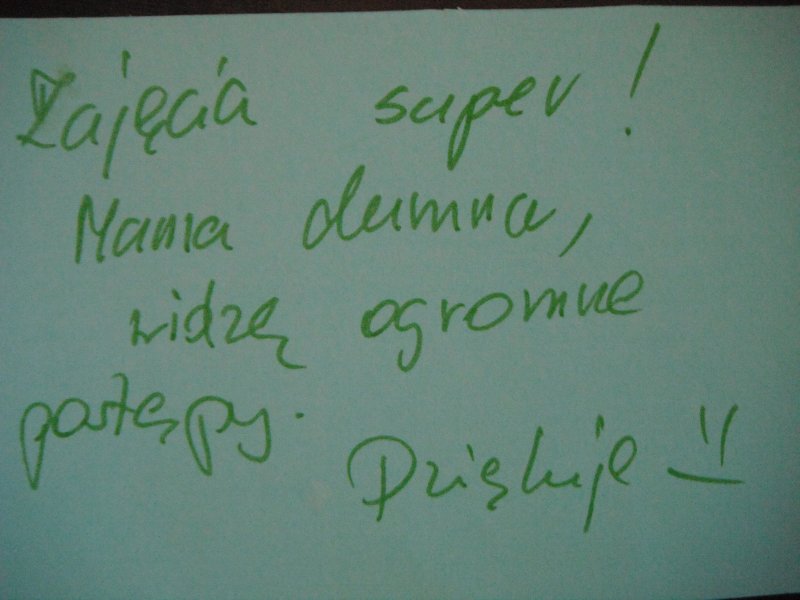 Zajęcia super!
Mama dumna,
widzę ogromne
postępy.
Dziękuje =)